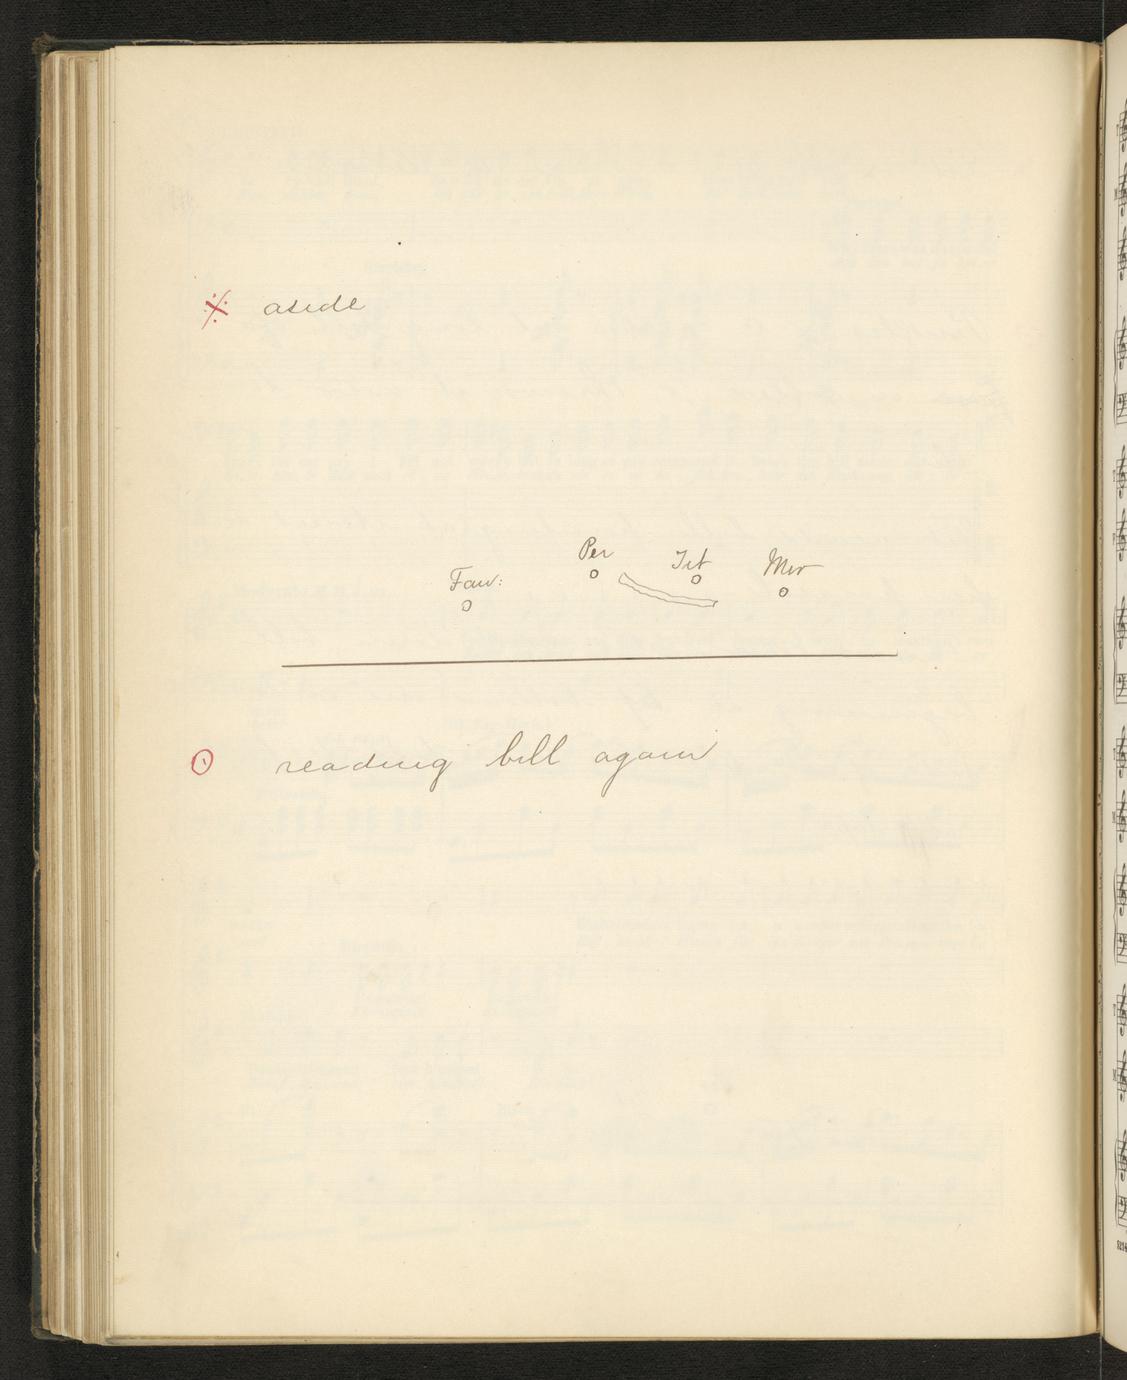 aside
Per Tit Mer
Fav:
reading bill again